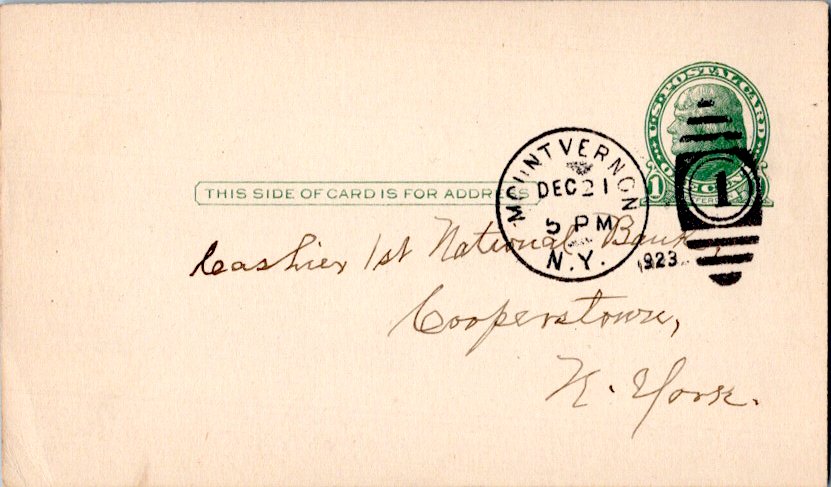 U.S. POSTAL CARD
ONE CENT
1
JEFFERSON
MOUNT VERNON
DEC 21
5 PM
N.Y.
1923
1
THIS SIDE OF CARD IS FOR ADDRESS
Cashier 1st National Bank,
Cooperstown,
N. York.